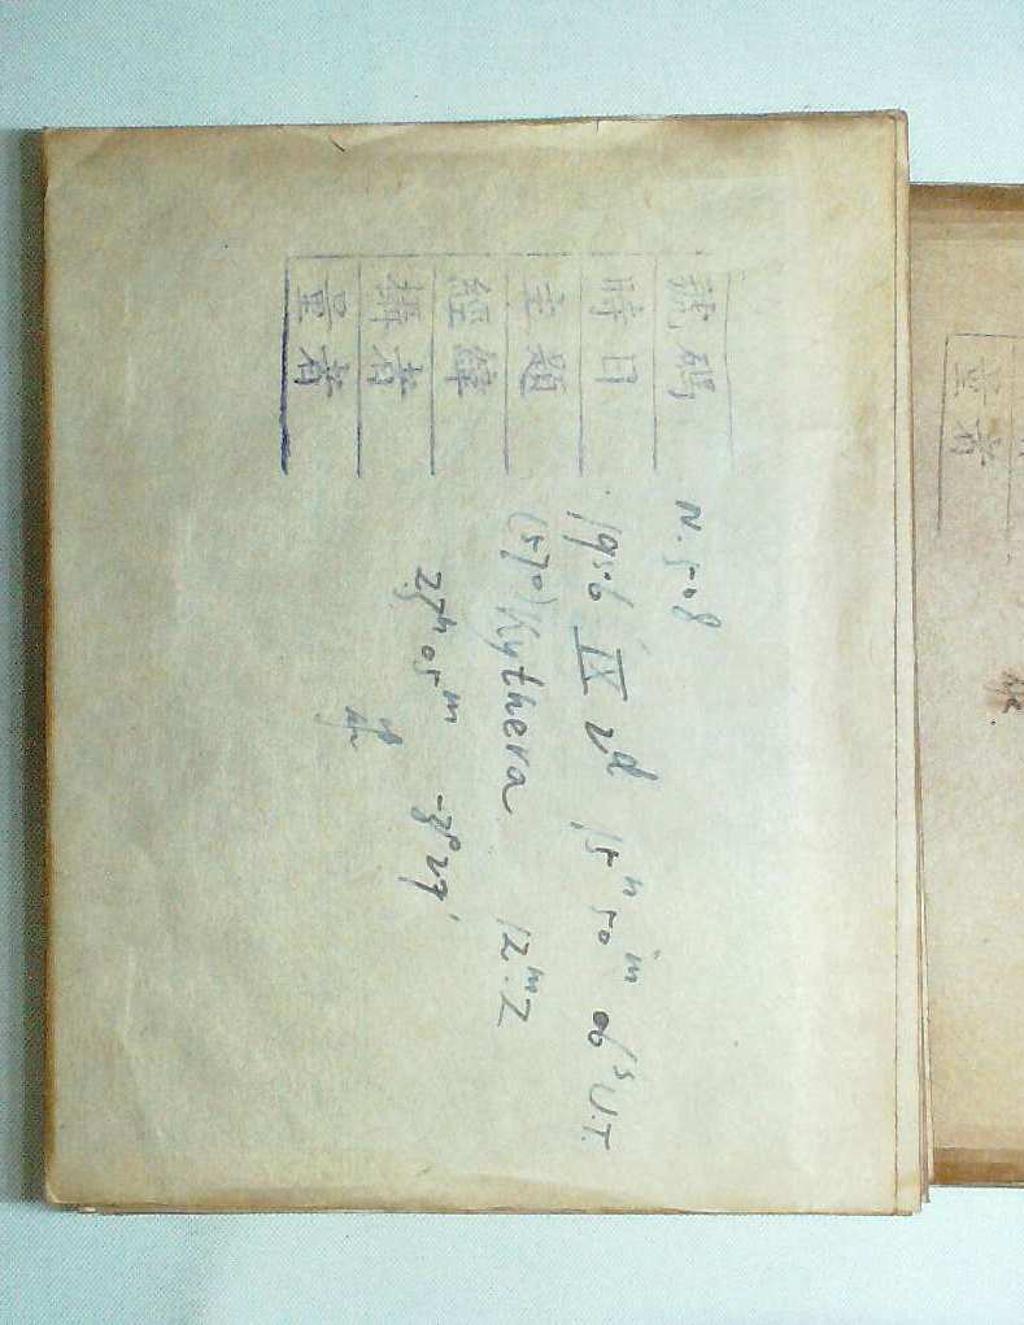 號碼 N. 508
時日 1956 IX 2d 15h 50m 06s U.T.
主題 (570) Kythera 12m.2
經緯 23h 05m -8°27'
攝者
量者
量者